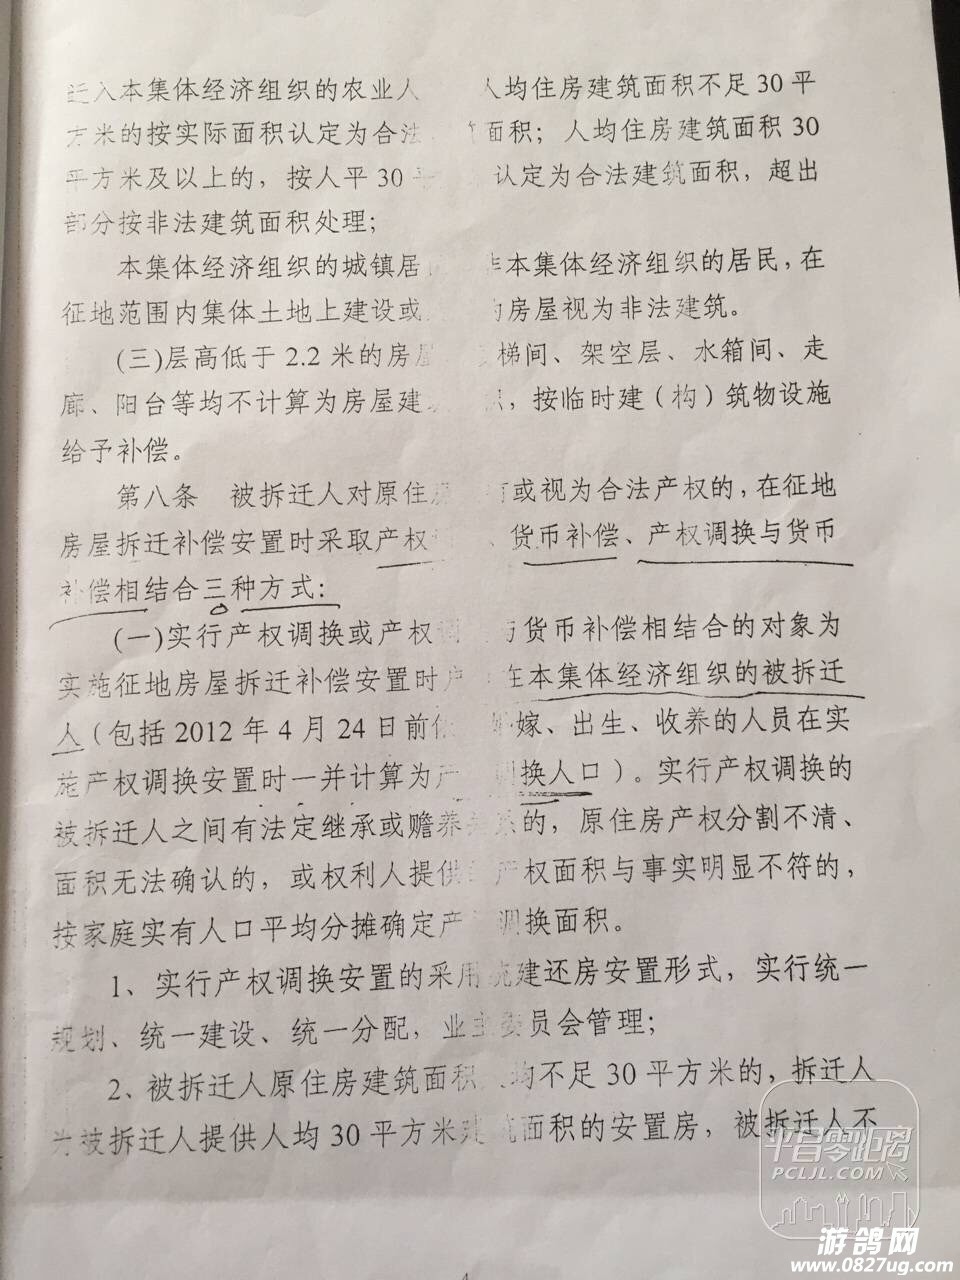 迁入本集体经济组织的农业人 人均住房建筑面积不足30平
方米的按实际面积认定为合法 面积；人均住房建筑面积30
平方米及以上的，按人平30平 认定为合法建筑面积，超出
部分按非法建筑面积处理；
本集体经济组织的城镇居 非本集体经济组织的居民，在
征地范围内集体土地上建设或 的房屋视为非法建筑。
(三)层高低于2.2米的房屋 梯间、架空层、水箱间、走
廊、阳台等均不计算为房屋建 ，按临时建（构）筑物设施
给予补偿。
第八条 被拆迁人对原住房 有或视为合法产权的，在征地
房屋拆迁补偿安置时采取产权 、货币补偿、产权调换与货币
补偿相结合三种方式：
(一)实行产权调换或产权调 与货币补偿相结合的对象为
实施征地房屋拆迁补偿安置时户 在本集体经济组织的被拆迁
人（包括2012年4月24日前 婚嫁、出生、收养的人员在实
施产权调换安置时一并计算为产 调换人口）。实行产权调换的
被拆迁人之间有法定继承或赡养关系的，原住房产权分割不清、
面积无法确认的，或权利人提供的产权面积与事实明显不符的，
按家庭实有人口平均分摊确定产 调换面积。
1、实行产权调换安置的采用统建还房安置形式，实行统一
规划、统一建设、统一分配，业主委员会管理；
2、被拆迁人原住房建筑面积人均不足30平方米的，拆迁人
为被拆迁人提供人均30平方米建筑面积的安置房，被拆迁人不
平昌零距离
PCLJL.COM
4
游鸽网
www.0827ug.com